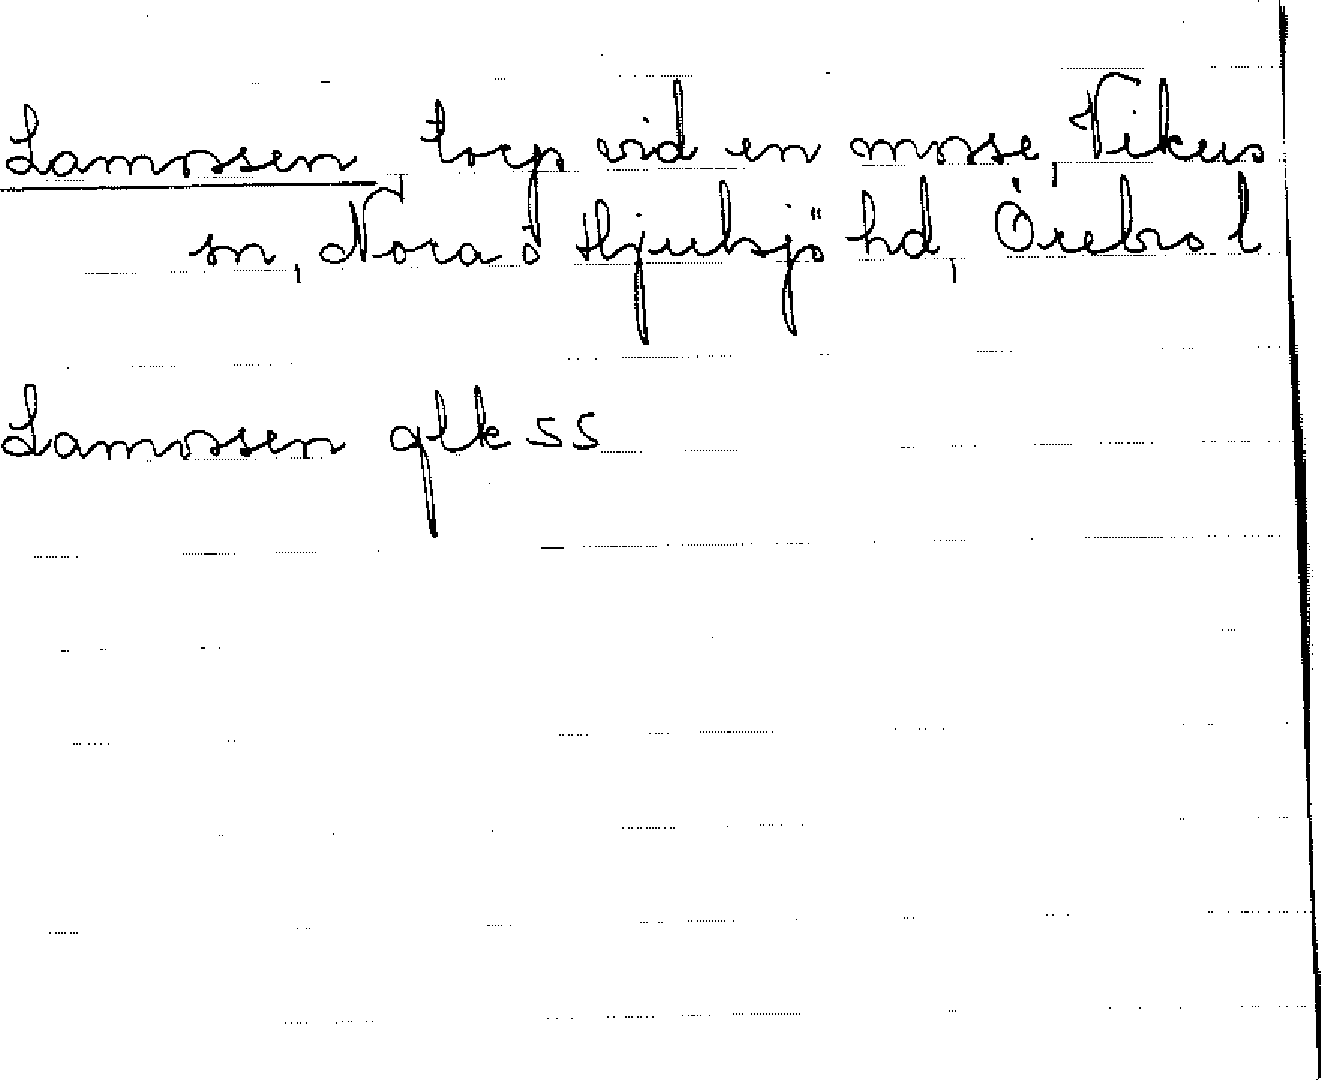 Lamossen torp vid en mosse, Vikers
sn, Nora o Hjulsjö hd, Örebro l
Lamossen glk 55